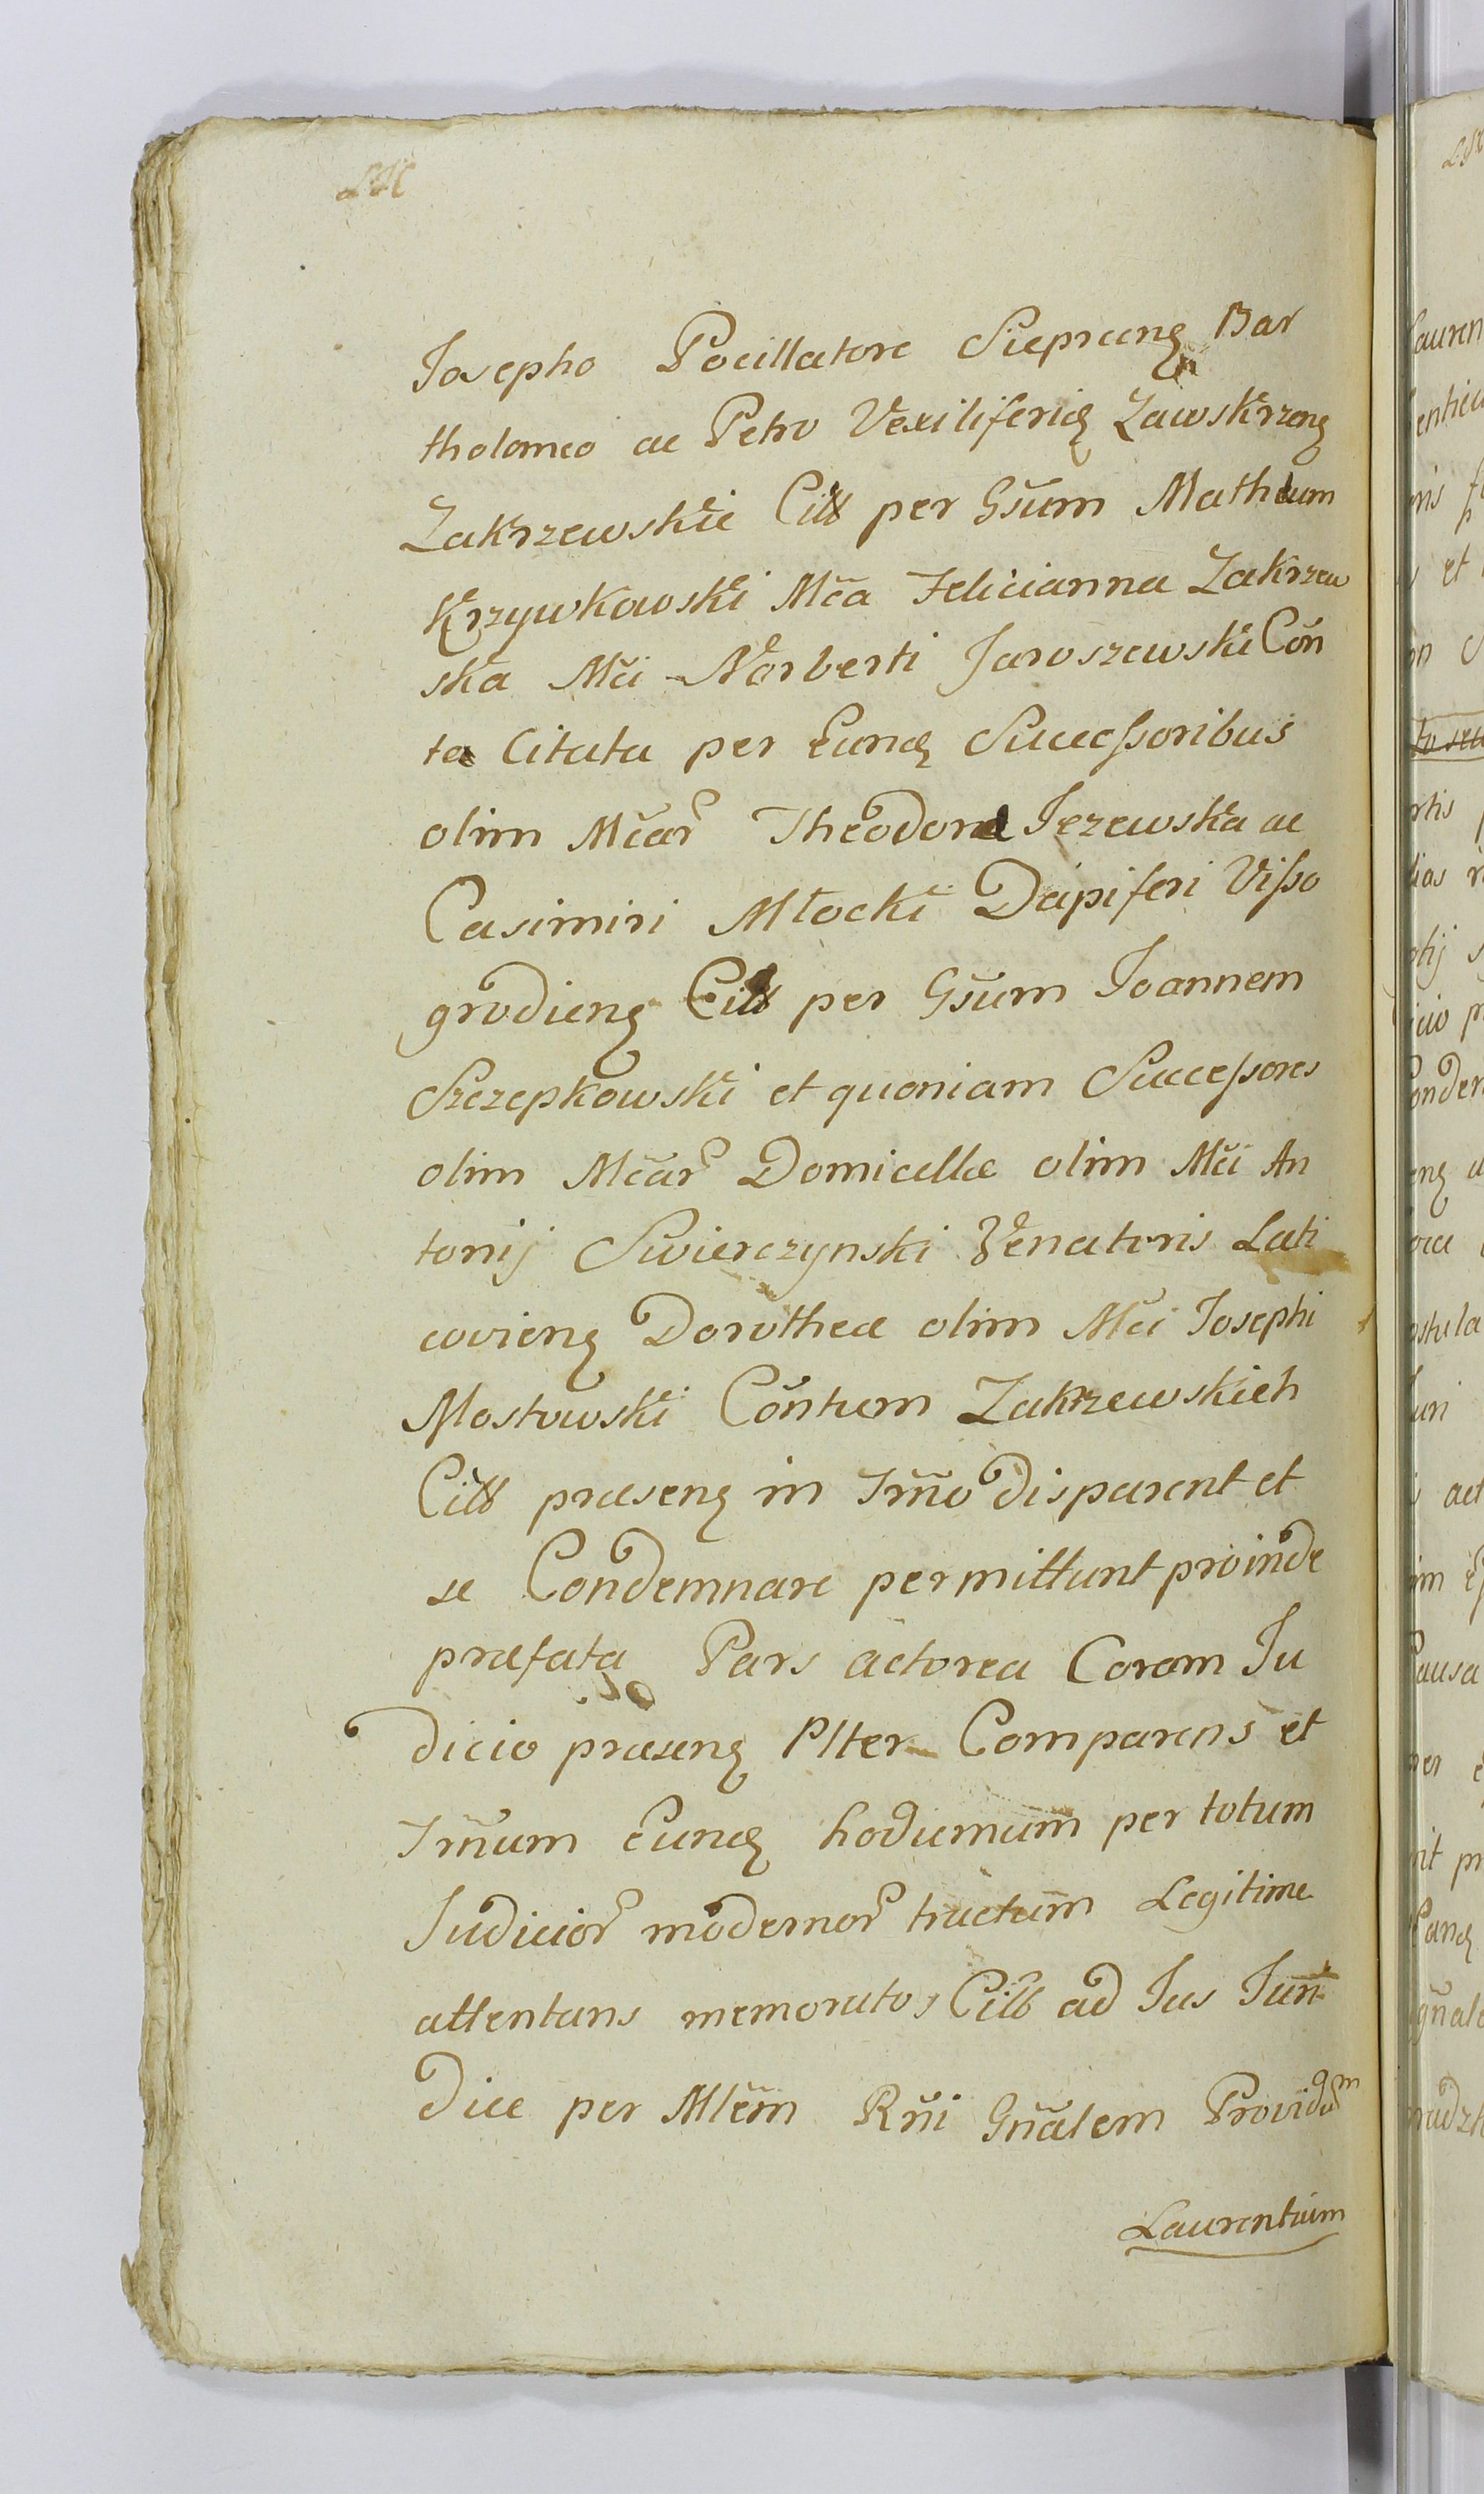 Josepho Pocillatore Sieprceng Bar
tholomeo ac Petro Vexiliferidą Zawskrzeng
Zakrzewskie Citt per Gsum Matheum
Krzywkowski Mča Felicianna Zakrzew
ska Mči Norberti Jaroszewski Coñ
ta Citata per Eundę Successoribus
olim Mčar Theodora Jezewska ac
Casimiri Młocki Dapiferi Visso
grodieng Citt per Gsum Joannem
Szczepkowski et quoniam Successores
olim Mčar Domicellæ olim Mči An
tonij Swierczynski Venatoris Lati
covieng Dorotheæ olim Mči Josephi
Mostowski Coñtum Zakrzewskich
Citt præseng in Tmño disparent et
se Condemnare permittunt proinde
præfata Pars actorea Coram Ju
dicio præseng Plter Comparens et
Tmñum Eundę hodiernum per totum
Judicior modernor tractum Legitime
attentans memoratos Citt ad Jus Juri
dice per Mlem Rñi Gñalem Providum
Laurentium